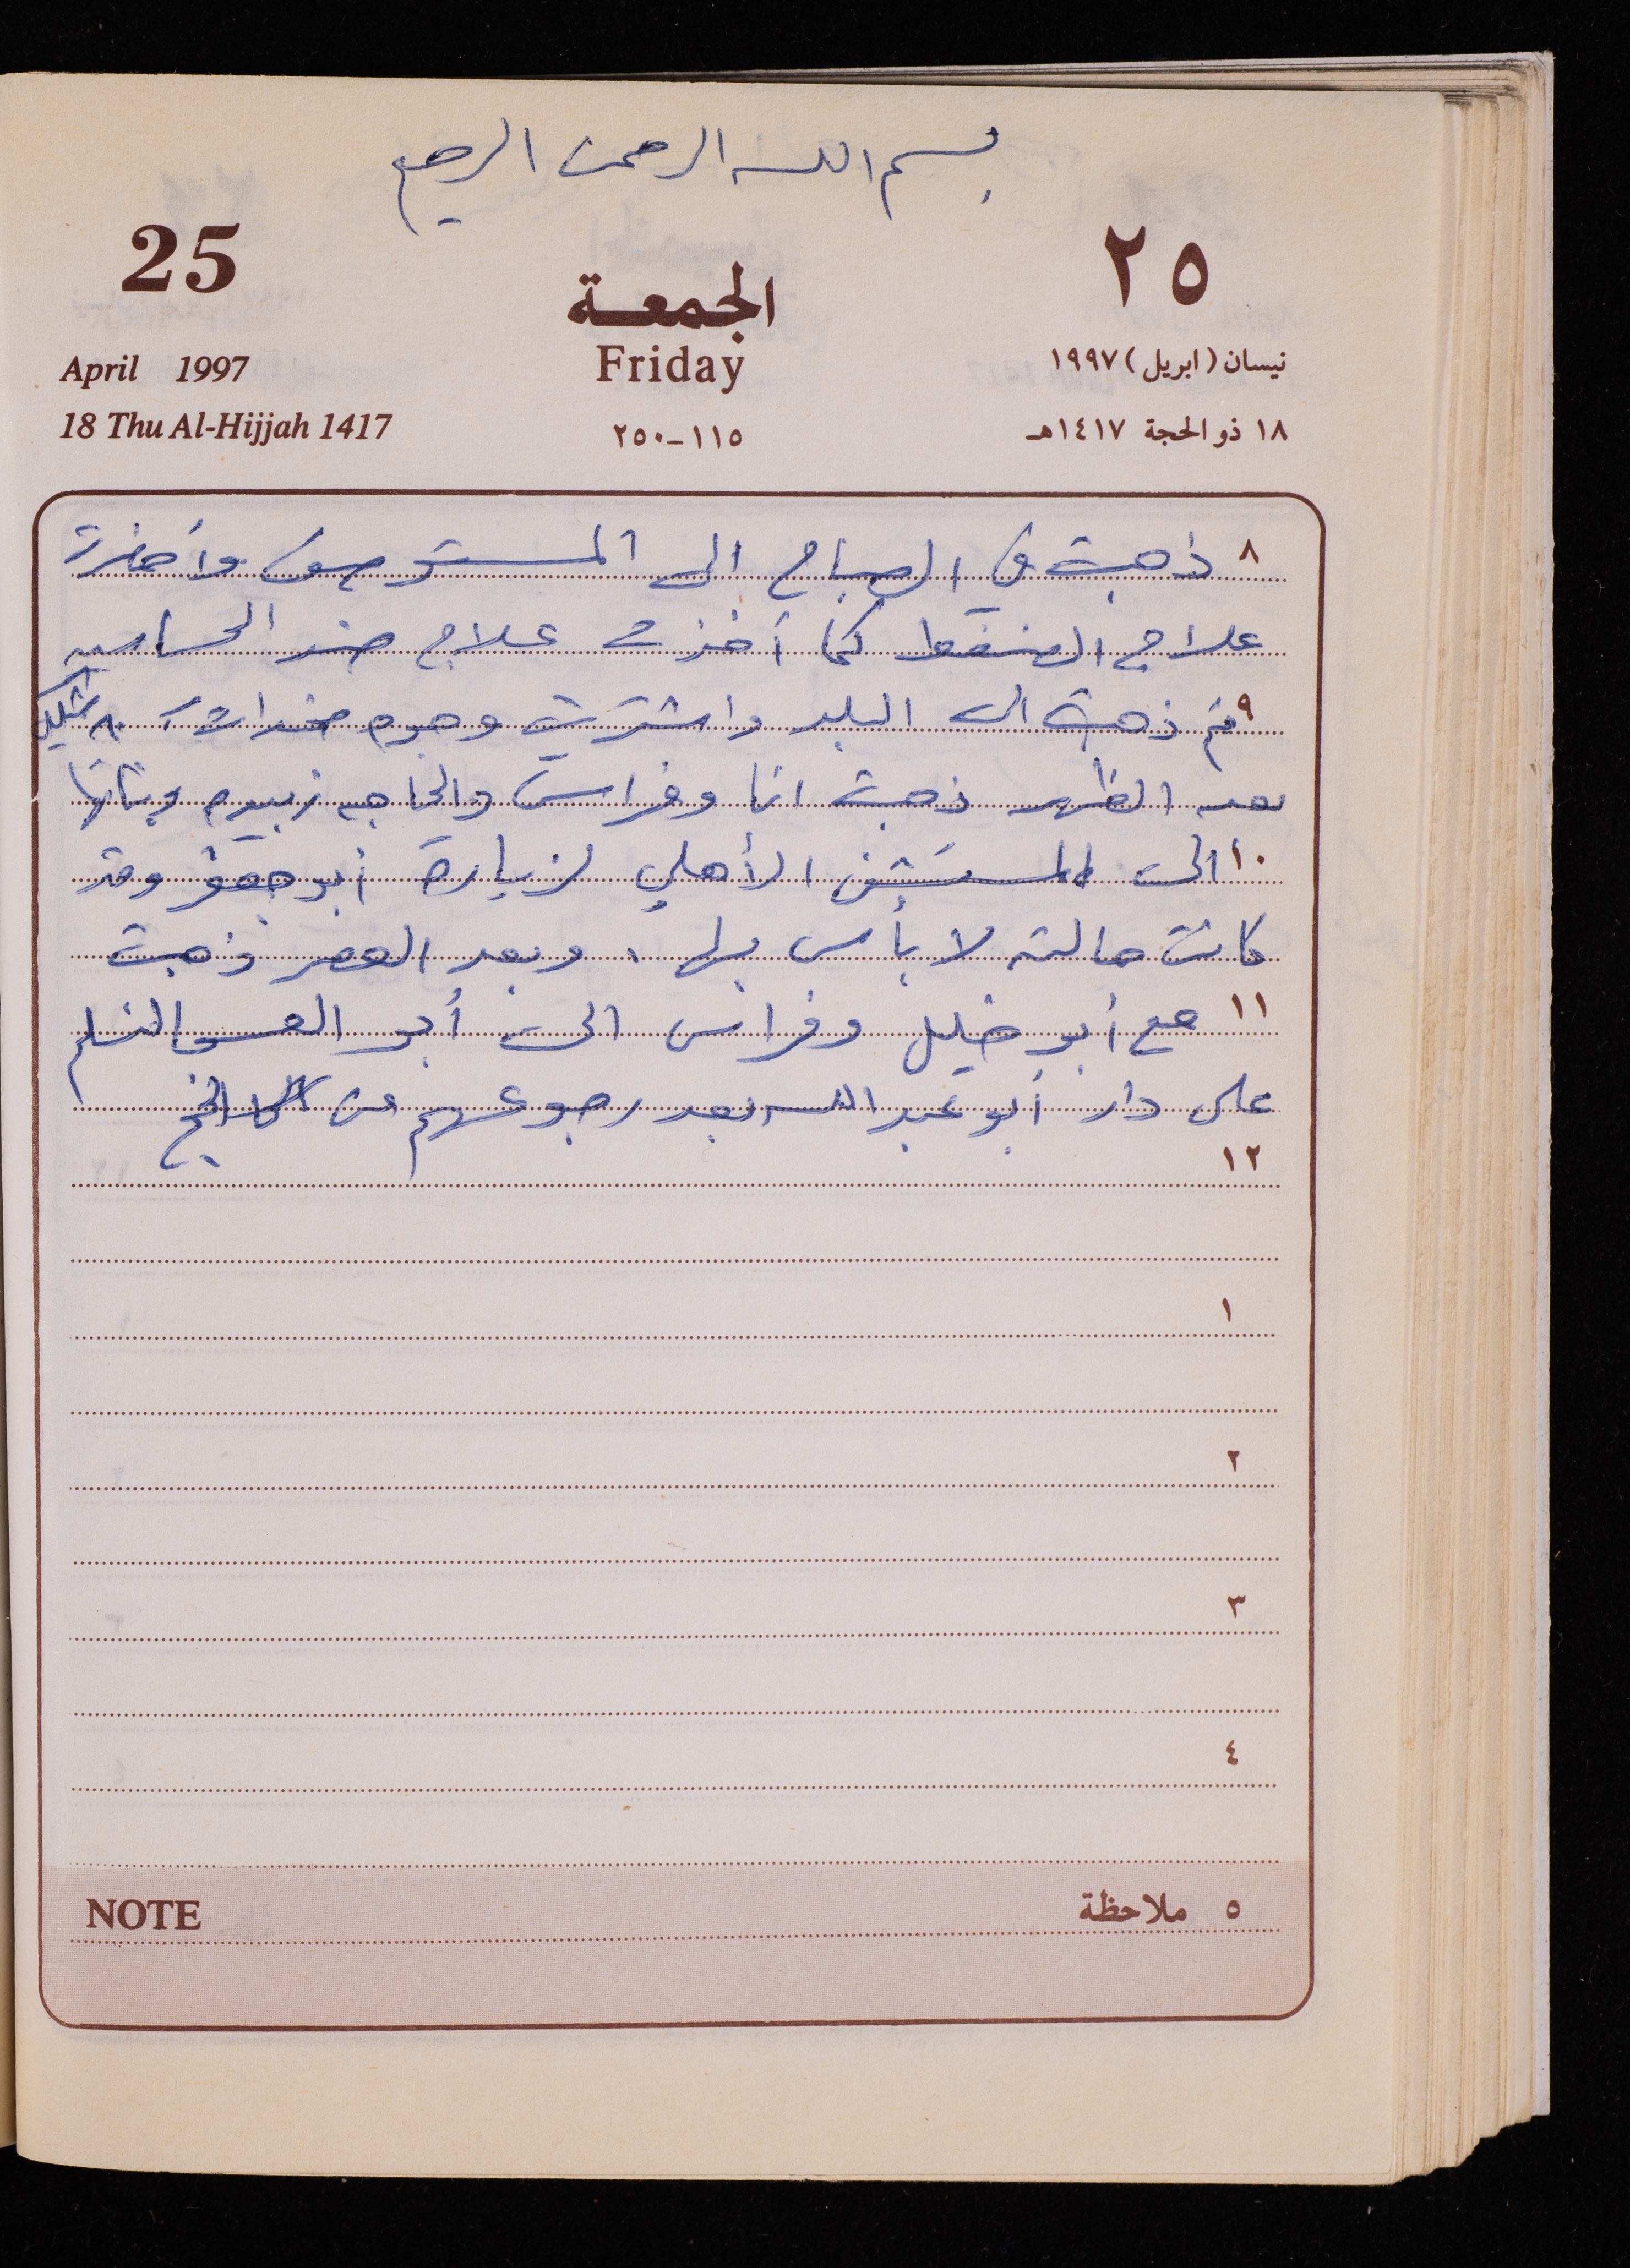 بسم الله الرحمن الرحيم
25
٢٥
الجمعة
Friday
April 1997
نيسان (ابريل) ١٩٩٧
18 Thu Al-Hijjah 1417
١١٥-٢٥٠
١٨ ذو الحجة ١٤١٧هـ
٨ ذهبت في الصباح الى المستوصف وأحضرت
علاج الضغط كما أخذت علاج ضد الحساسيه
٩ ثم ذهبت الى البلد واشتريت وجوه
بعد الظهر ذهبت انا وفراس والحاجه زبيده وبناتها
١٠ الى المستشفى الأهلي لزيارة أبو وقد
كانت حالته لا بأس بها. وبعد العصر ذهبت
١١ مع أبو خليل وفراس الى أبو لنسلم
على دار أبو عبد الله بعد رجوعهم من الحج
١٢
١
٢
٣
٤
NOTE
٥ ملاحظة